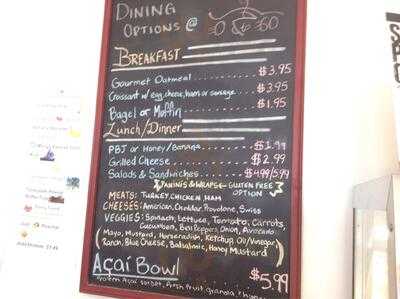 DINING
OPTIONS @
BREAKFAST
Gourmet Oatmeal $3.95
Croissant w/ egg, cheese, ham or sausage $3.95
Bagel or Muffin $1.95
Lunch/Dinner
PBJ or Honey/Banana $1.99
Grilled Cheese $2.99
Salads & Sandwiches $4.99/5.99
PANINIS & WRAPS - GLUTEN FREE
OPTION
MEATS: TURKEY, CHICKEN, HAM
CHEESES: American, Cheddar, Provolone, Swiss
VEGGIES: Spinach, Lettuce, Tomato, Carrots,
Cucumbers, Bell Peppers, Onion, Avocado
(Mayo, Mustard, Horseradish, Ketchup, Oil/Vinegar
Ranch, Blue Cheese, Balsalmic, Honey Mustard)
AÇAÍ BOWL $5.99
Açai sorbet, fresh fruit, granola